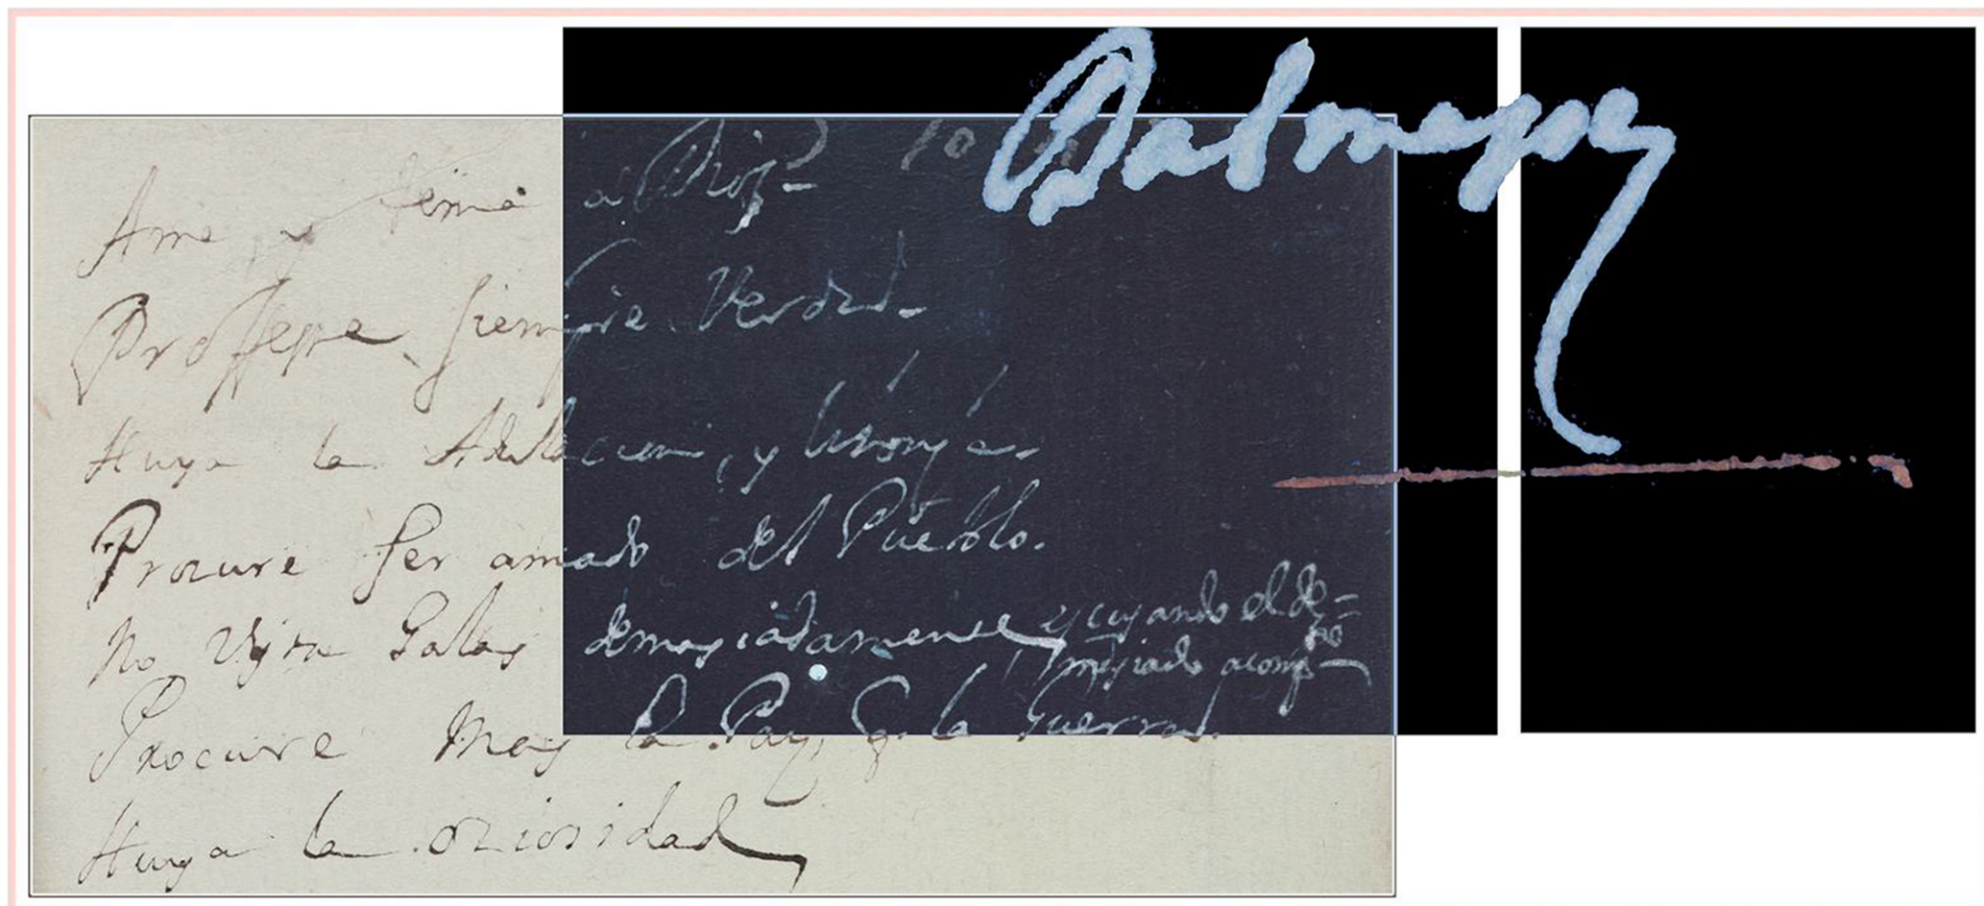 Balmaseda
Ame y tema a Dios
Professe siempre Verdad.
Huya la Adulacion, y lisonja.
Procure ser amado del Pueblo.
No Vista Galas demasiadamente, y cuando el de=
masiado acomp
Procure mas la Paz, q. la Guerra.
Huya la oziosidad